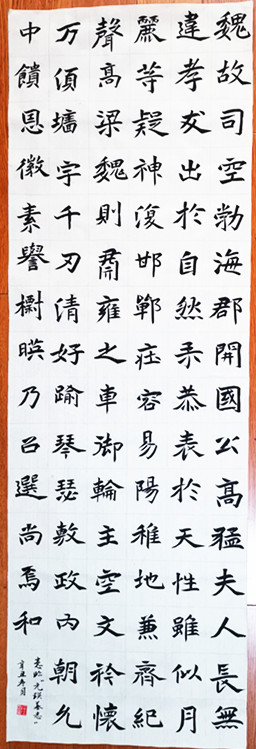 魏故司空勃海郡開國公高猛夫人長無
違孝友出於自然柔恭表於天性雖似月
麗等疑神復邯鄲莊容易陽稚地兼齊紀
聲高梁魏則肅雍之車御輪主空文衿懷
万頃墻宇千刃清好踰琴瑟敷政內朝允
中饋恩徽素譽櫥暎乃召選尚焉和
意临《元瑛墓志》
辛丑年月